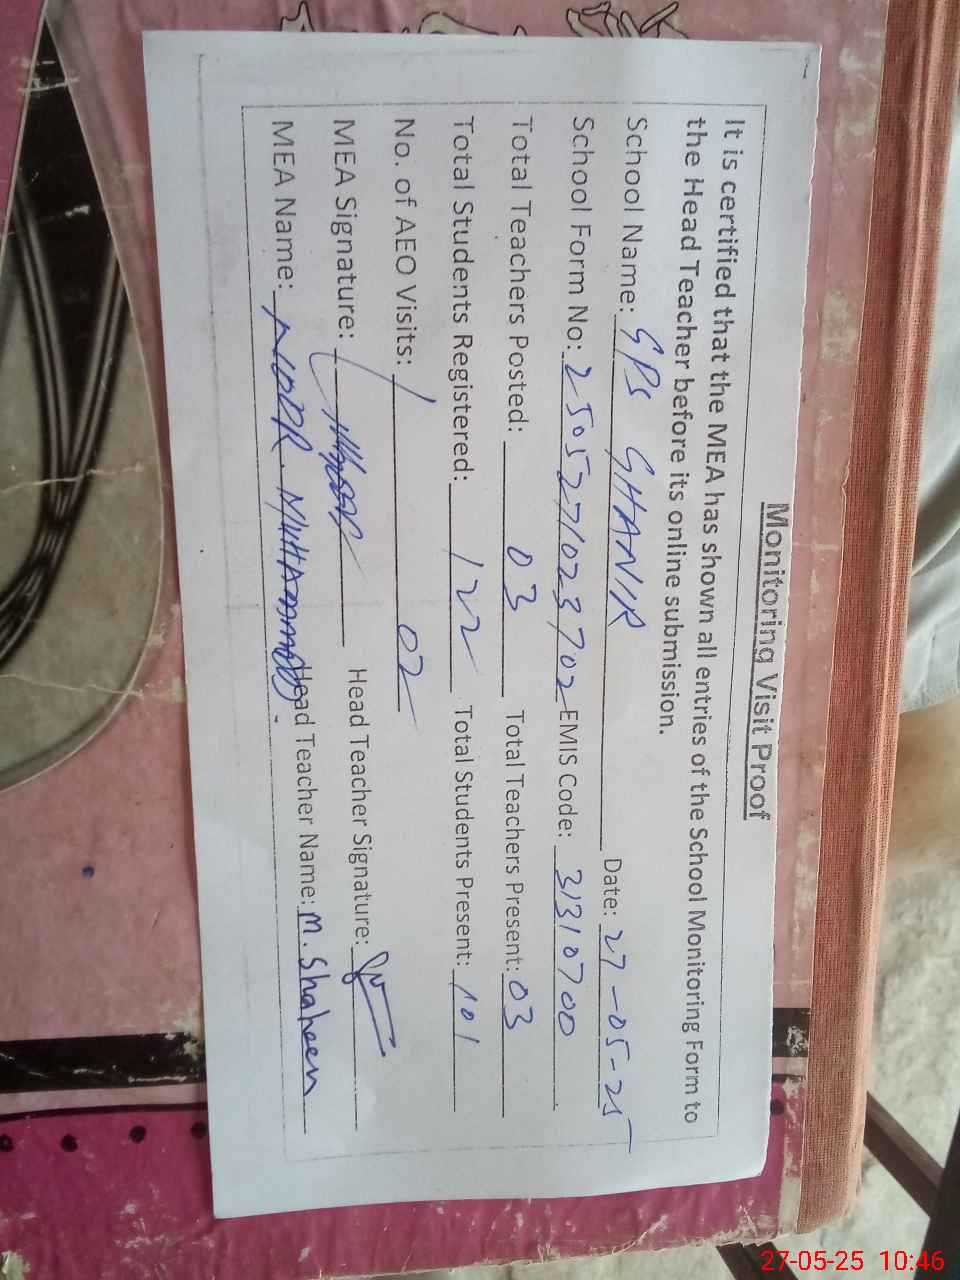 Monitoring Visit Proof
It is certified that the MEA has shown all entries of the School Monitoring Form to
the Head Teacher before its online submission.
School Name: GPS GHANIR Date: 27-05-25
School Form No: 2505271023702 EMIS Code: 31310700
Total Teachers Posted: 03 Total Teachers Present: 03
Total Students Registered: 122 Total Students Present: 101
No. of AEO Visits: 02
MEA Signature: Head Teacher Signature:
MEA Name: MUHAMMAD Head Teacher Name: M. Shaheen
27-05-25 10:46